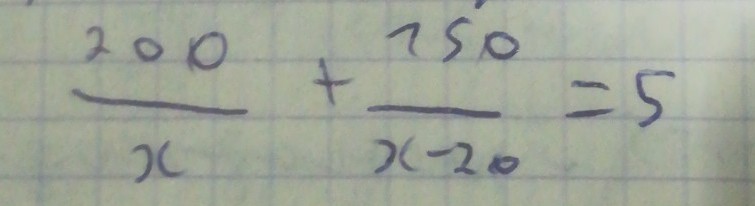 200/x + 150/(x-20) = 5